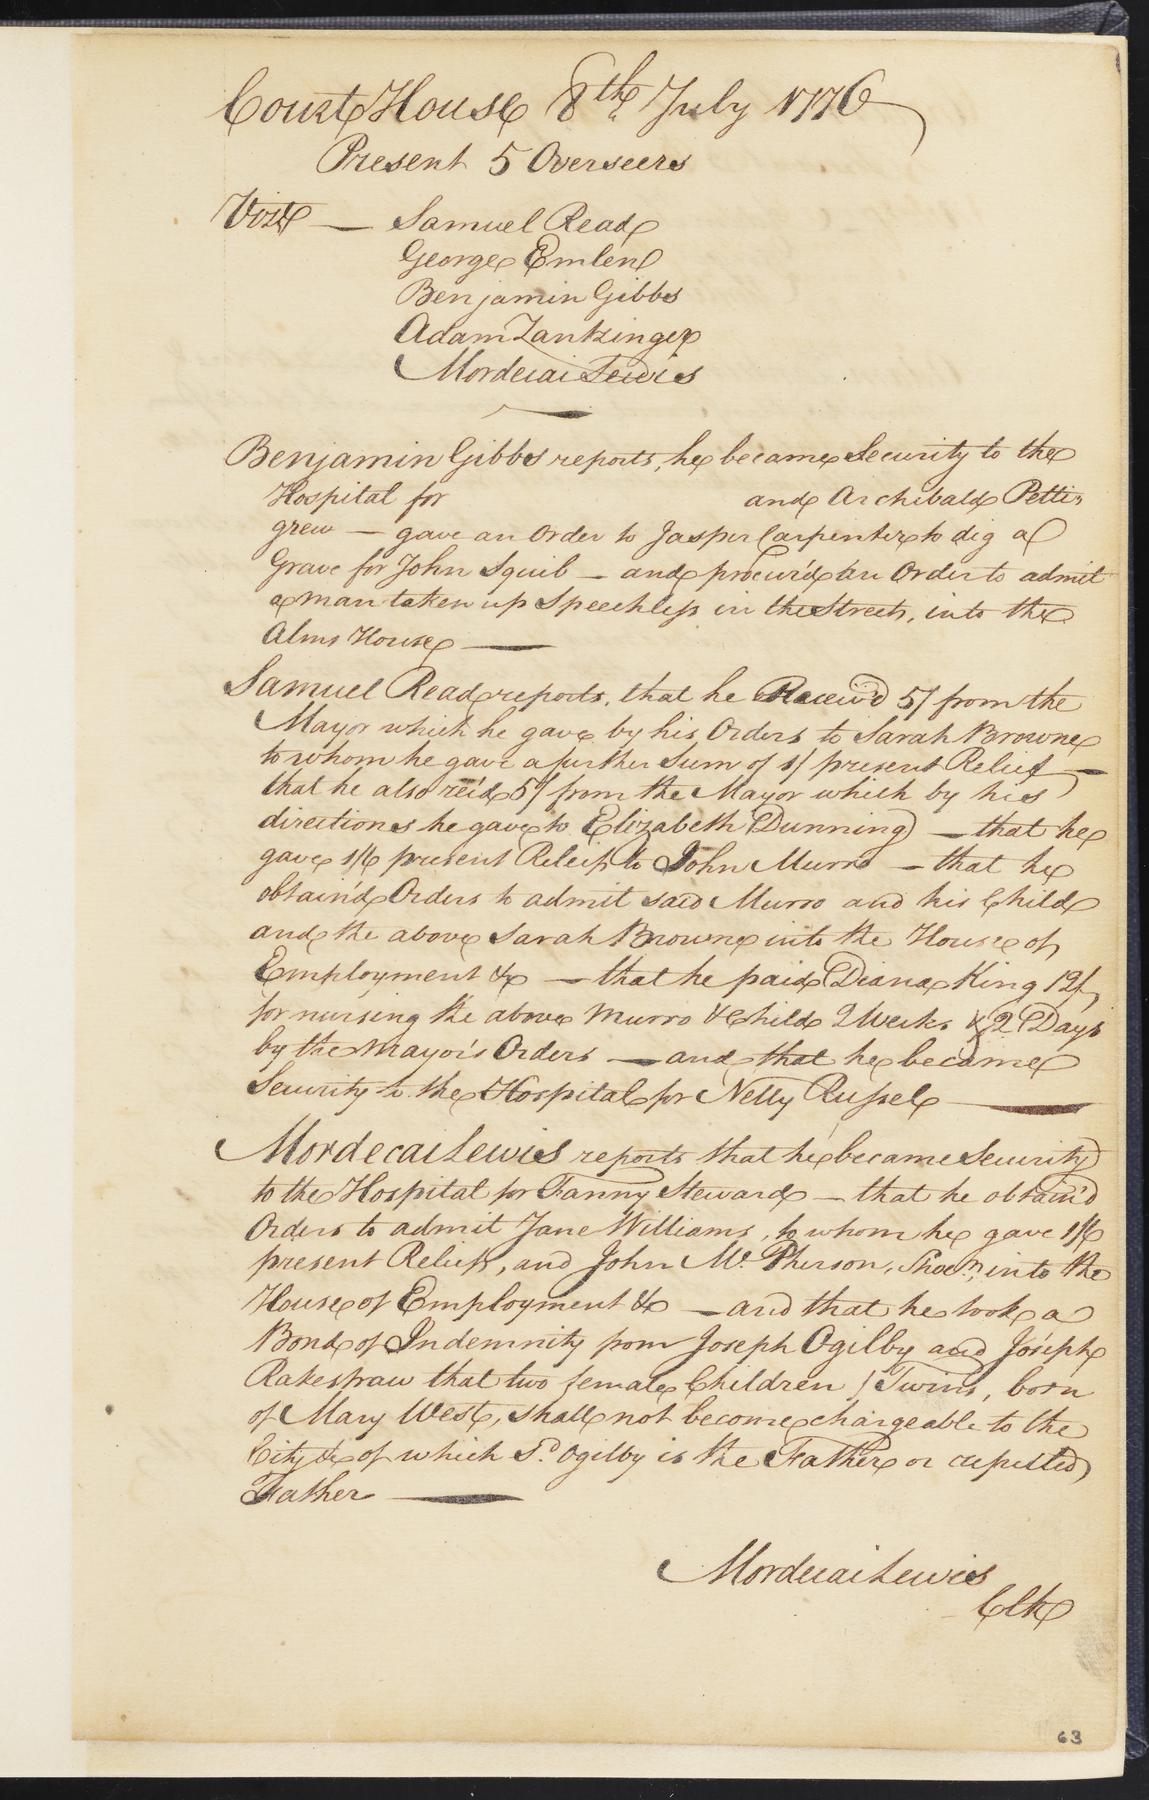 Court House 8th July 1776
Present 5 Overseers
Vizt — Samuel Read
George Emlen
Benjamin Gibbs
Adam Zantzinger
Mordecai Lewis
Benjamin Gibbs reports, he became Security to the
Hospital for and Archibald Petti-
grew — gave an Order to Jasper Carpenter to dig a
Grave for John Squib — and procur'd an Order to admit
a man taken up Speechless in the Streets, into the
Alms House —
Samuel Read reports, that he Receiv'd 5/ from the
Mayor which he gave by his Orders to Sarah Browne
to whom he gave a further Sum of 1/ present Relief —
that he also rec'd 5/ from the Mayor which by his
directions he gave to Elizabeth Dunning — that he
gave 1/6 present Releif to John Murro — that he
obtain'd Orders to admit said Murro and his Child
and the above Sarah Browne into the House of
Employment &c — that he paid Diana King 12/
for nursing the above Murro & Child 2 Weeks & 2 Days
by the Mayor's Orders — and that he became
Security to the Hospital for Nelly Russel —
Mordecai Lewis reports that he became Security
to the Hospital for Fanny Steward — that he obtain'd
Orders to admit Jane Williams, to whom he gave 1/6
present Relief, and John Mc. Pherson, Shoemr., into the
House of Employment &c — and that he took a
Bond of Indemnity from Joseph Ogilby and Joseph
Rakestraw that two female Children / Twins, born
of Mary West, shall not become chargeable to the
City &c of which Sd. Ogilby is the Father or reputed
Father —
Mordecai Lewis
Clk
63